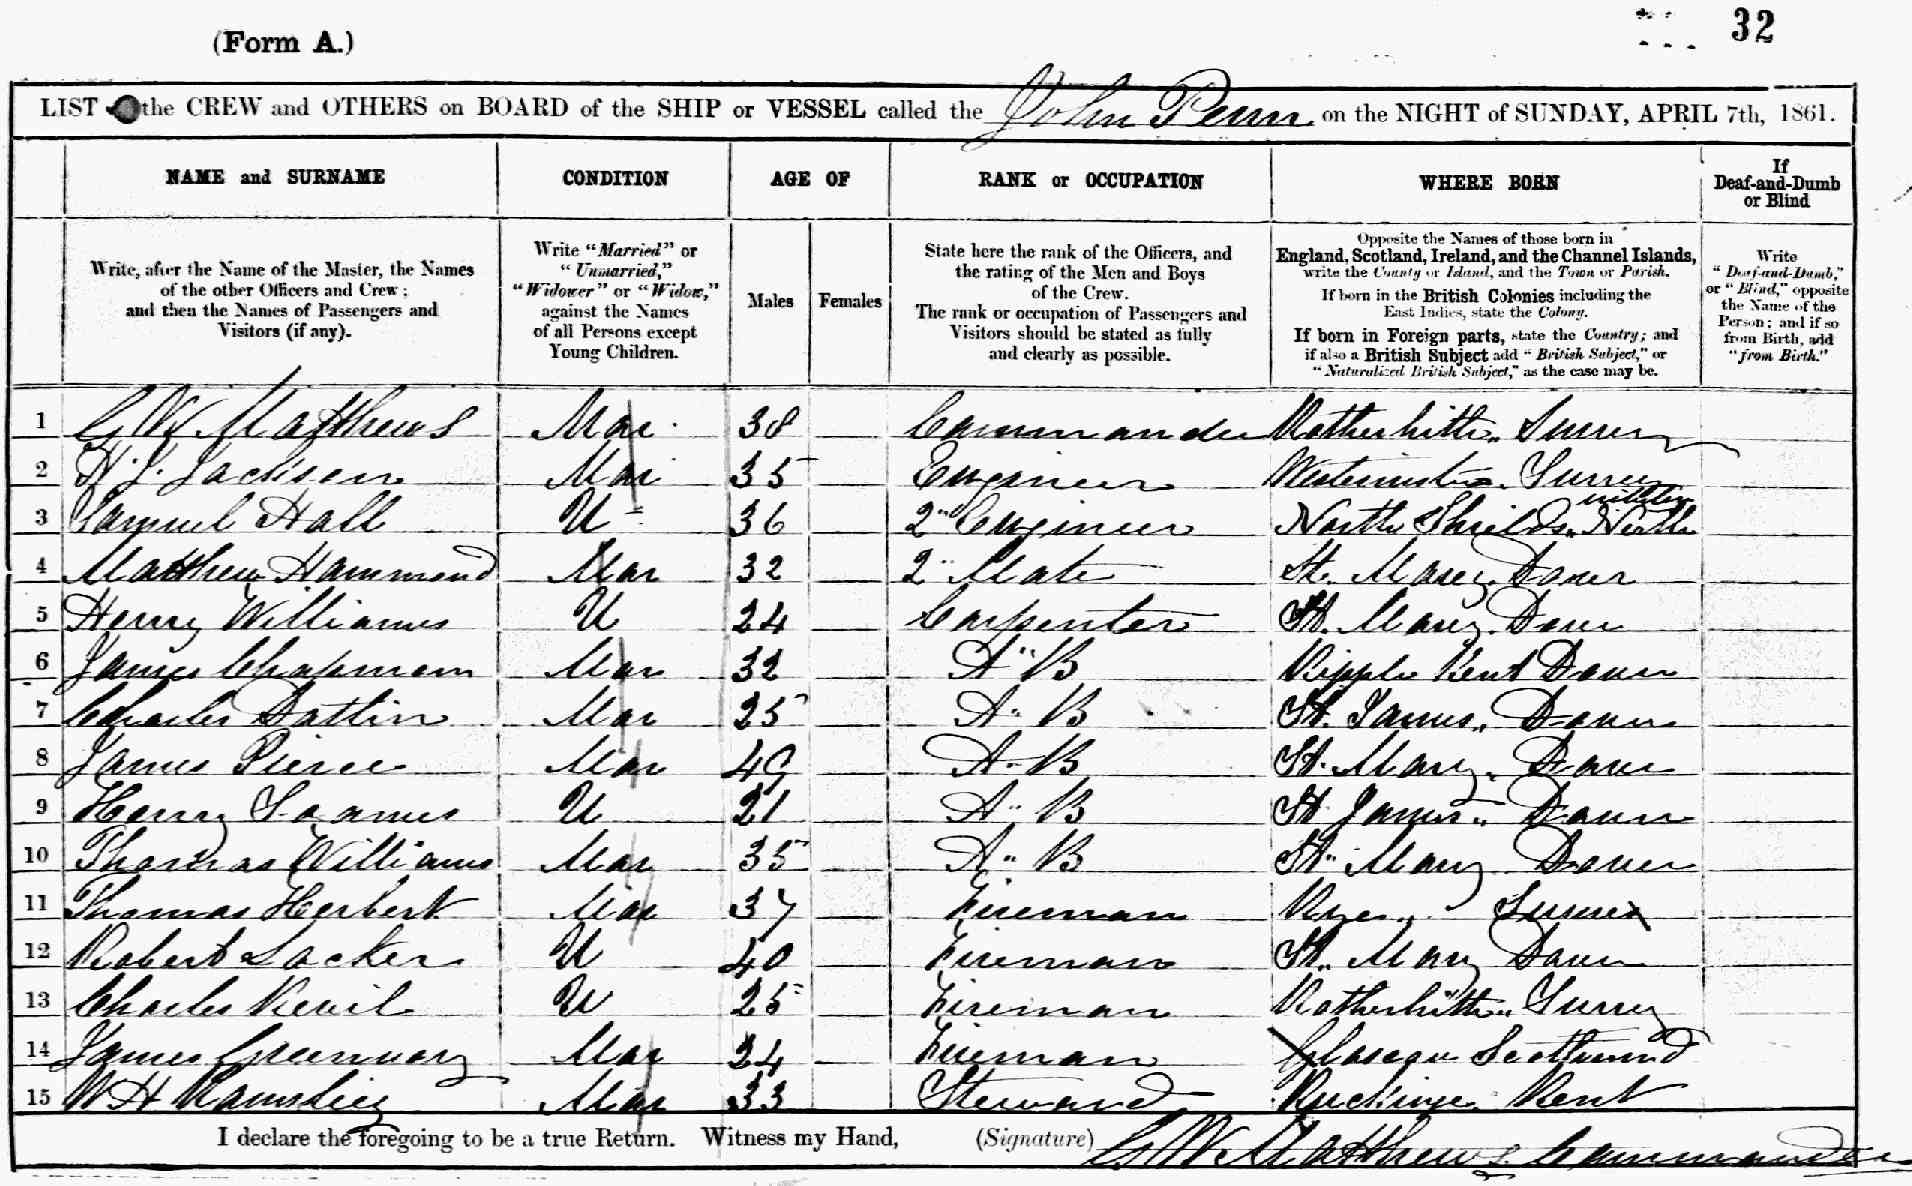 32
(Form A.)
LIST the CREW and OTHERS on BOARD of the SHIP or VESSEL called the John Penn on the NIGHT of SUNDAY, APRIL 7th, 1861.
NAME and SURNAME CONDITION AGE OF RANK or OCCUPATION WHERE BORN If Deaf-and-Dumb or Blind
Write, after the Name of the Master, the Names
of the other Officers and Crew;
and then the Names of Passengers and
Visitors (if any).
Write "Married" or
"Unmarried,"
"Widower" or "Widow,"
against the Names
of all Persons except
Young Children.
Males Females
State here the rank of the Officers, and
the rating of the Men and Boys
of the Crew.
The rank or occupation of Passengers and
Visitors should be stated as fully
and clearly as possible.
Opposite the Names of those born in
England, Scotland, Ireland, and the Channel Islands,
write the County or Island, and the Town or Parish.
If born in the British Colonies including the
East Indies, state the Colony.
If born in Foreign parts, state the Country; and
if also a British Subject add "British Subject," or
"Naturalized British Subject," as the case may be.
Write
"Deaf-and-Dumb,"
or "Blind," opposite
the Name of the
Person; and if so
from Birth, add
"from Birth."
1 G W Matthews Mar 38 Commander Rotherhithe Surrey
2 H. J. Jackson Mar 35 Engineer Westminster Surrey
3 Samuel Hall U 36 2" Engineer North Shields North
4 Matthew Hammond Mar 32 2" Mate St. Mary Dover
5 Henry Williams U 24 Carpenter St. Mary Dover
6 James Chapman Mar 32 A" B Ripple Kent Dover
7 Charles Datlin Mar 25 A" B St. James Dover
8 James Pierce Mar 49 A" B St. Mary Dover
9 Henry U 21 A" B St James Dover
10 Thomas Williams Mar 35 A" B St" Mary Dover
11 Thomas Herbert Mar 37 Fireman Rye Sussex
12 Robert Locker U 40 Fireman St. Mary Dover
13 Charles Kevil U 25 Fireman Rotherhithe Surrey
14 James Greenway Mar 34 Fireman Glasgow Scotland
15 W H Mar 33 Steward Ruckinge Kent
I declare the foregoing to be a true Return. Witness my Hand, (Signature) G W Matthews Commander